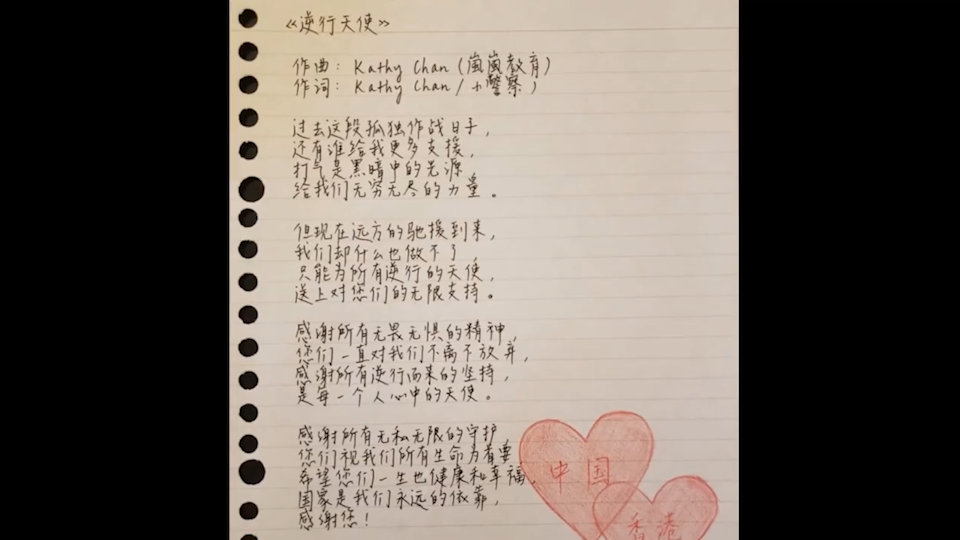 《逆行天使》
作曲: Kathy Chan (嵐嵐教育)
作词: Kathy Chan / 小警察)
过去这段孤独作战日子,
还有谁给我更多支援,
打气是黑暗中的光源
给我们无穷无尽的力量。
但现在远方的驰援到来,
我们却什么也做不了,
只能为所有逆行的天使,
送上对您们的无限支持。
感谢所有无畏无惧的精神,
您们一直对我们不离不放弃,
感谢所有逆行而来的坚持,
是每一个人心中的天使。
感谢所有无私无限的守护
您们视我们所有生命为首要
希望您们一生也健康和幸福,
国家是我们永远的依靠,
感谢您!
中国
香港